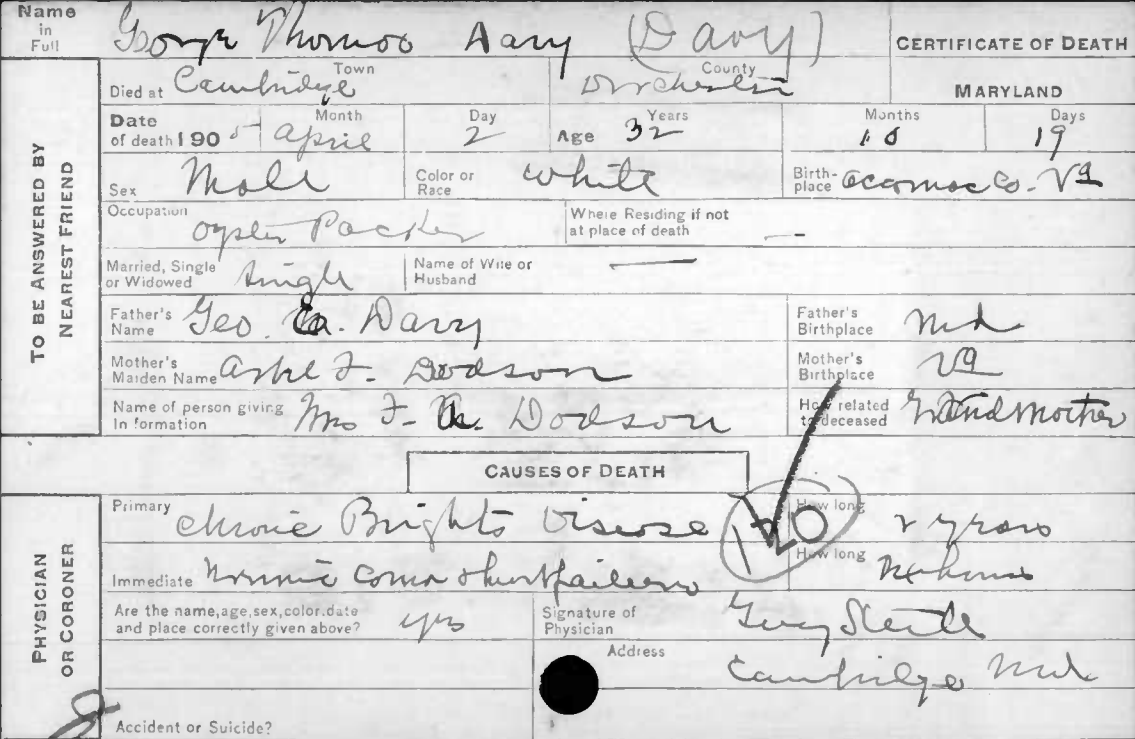 Name in Full George Thomas Aary (Davy) CERTIFICATE OF DEATH
Died at Town Cambridge County Dorchester MARYLAND
Date of death 1905 Month April Day 2 Age 32 Years Months 10 Days 19
Sex Male Color or Race White Birth-place Accomac Co. Va
Occupation Oyster Packer Where Residing if not at place of death —
Married, Single or Widowed Single Name of Wife or Husband —
Father's Name Geo. Davy Father's Birthplace Md
Mother's Maiden Name F. Dodson Mother's Birthplace Va
Name of person giving In formation Mrs F. Dodson How related to deceased Grandmother
TO BE ANSWERED BY NEAREST FRIEND
CAUSES OF DEATH
Primary Chronic Brights Disease 120 How long 2 years
Immediate Uraemic Coma & heart failure How long hours
Are the name, age, sex, color. date and place correctly given above? yes Signature of Physician Guy Steele
Address Cambridge Md
Accident or Suicide?
PHYSICIAN OR CORONER